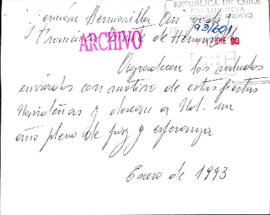 REPUBLICA DE CHILE
PRESIDENCIA
ARCHIVO
93/601
ENE 93
Germán Hermosilla
Francisca de Hermosilla
ARCHIVO
Agradecen los saludos
enviados con motivo de estas fiestas
Navideñas y desean a Ud. un
año pleno de paz y esperanza
Enero de 1993